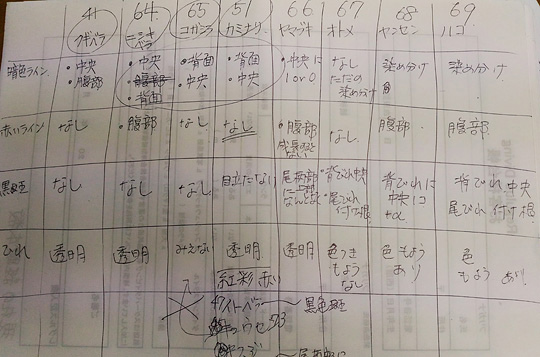 41 64 65 51 66 67 68 69
クギベラ ニシキベラ コガシラ カミナリ ヤマブキ オトメ ヤンセン ハコ
暗色ライン ・中央 ・中央 ・背面 ・背面 ・中央に なし 染め分け 染め分け
・腹部 ・腹部 中央 ・中央 1or0 ただの
・背面 染め分け
赤いライン なし ・腹部 なし なし ・腹部 なし 腹部 腹部
黒斑 なし なし なし 目立たない 尾柄部 背びれ中央 背びれに 背びれ中央
尾びれ 中央に 尾びれ 付け根
付け根 +α
ひれ 透明 透明 みえない 透明 透明 色つき 色もよう 色
もよう あり もよう あり
なし
虹彩 赤い
黒色斑
53